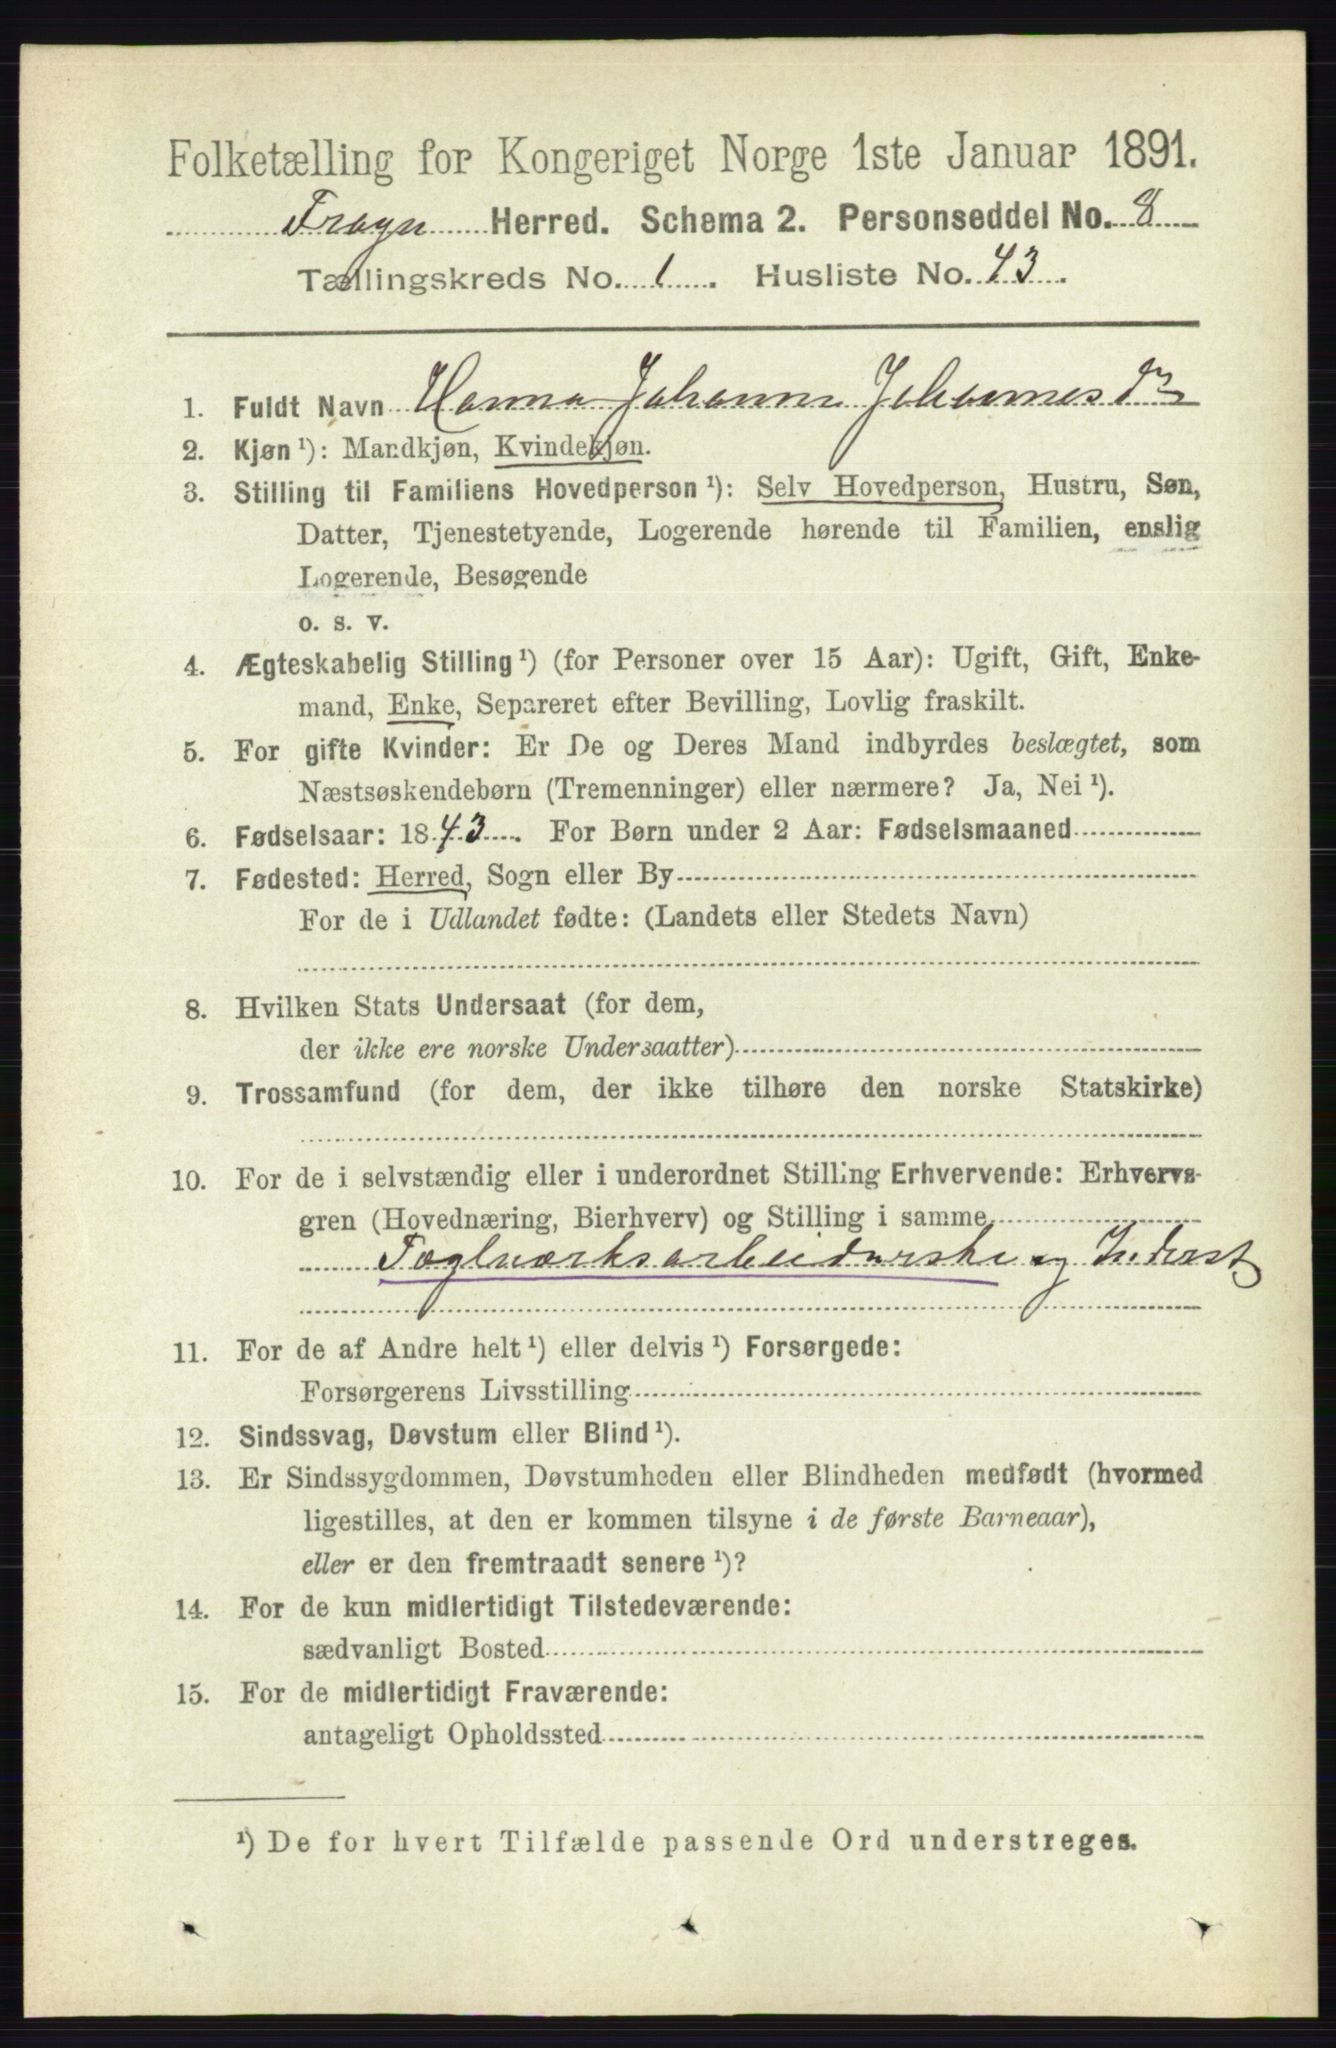 Folketælling for Kongeriget Norge 1ste Januar 1891.
Frogn Herred. Schema 2. Personseddel No. 8
Tællingskreds No. 1. Husliste No. 43.
1. Fuldt Navn Hanna Johanne Johannesdr
2. Kjøn ¹): Mandkjøn, Kvindekjøn.
3. Stilling til Familiens Hovedperson ¹): Selv Hovedperson, Hustru, Søn,
Datter, Tjenestetyende, Logerende hørende til Familien, enslig
Logerende, Besøgende
o. s. v.
4. Ægteskabelig Stilling ¹) (for Personer over 15 Aar): Ugift, Gift, Enke-
mand, Enke, Separeret efter Bevilling, Lovlig fraskilt.
5. For gifte Kvinder: Er De og Deres Mand indbyrdes beslægtet, som
Næstsøskendebørn (Tremenninger) eller nærmere? Ja, Nei ¹).
6. Fødselsaar: 1843. For Børn under 2 Aar: Fødselsmaaned
7. Fødested: Herred, Sogn eller By
For de i Udlandet fødte: (Landets eller Stedets Navn)
8. Hvilken Stats Undersaat (for dem,
der ikke ere norske Undersaatter)
9. Trossamfund (for dem, der ikke tilhøre den norske Statskirke)
10. For de i selvstændig eller i underordnet Stilling Erhvervende: Erhvervs-
gren (Hovednæring, Bierhverv) og Stilling i samme
Taglværksarbeiderske og Inderst
11. For de af Andre helt ¹) eller delvis ¹) Forsørgede:
Forsørgerens Livsstilling
12. Sindssvag, Døvstum eller Blind ¹).
13. Er Sindssygdommen, Døvstumheden eller Blindheden medfødt (hvormed
ligestilles, at den er kommen tilsyne i de første Barneaar),
eller er den fremtraadt senere ¹)?
14. For de kun midlertidigt Tilstedeværende:
sædvanligt Bosted
15. For de midlertidigt Fraværende:
antageligt Opholdssted
¹) De for hvert Tilfælde passende Ord understreges.